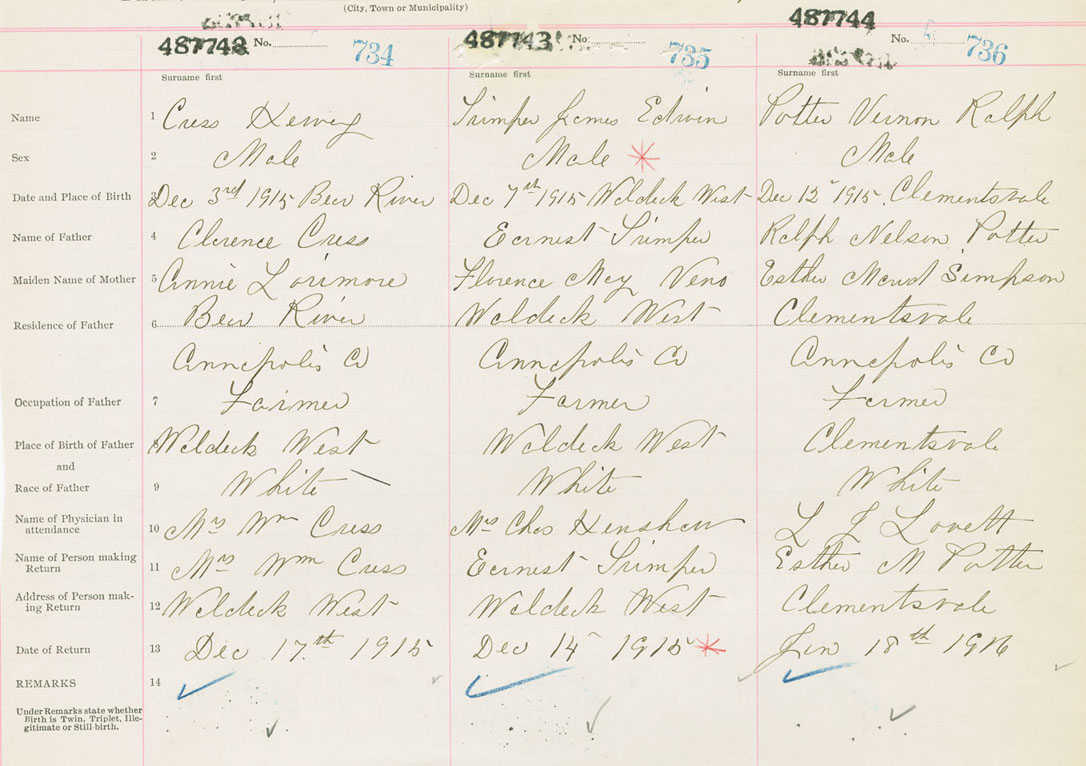 (City, Town or Municipality)
487742 No. 734 487743 No. 735 487744 No. 736
Surname first Surname first Surname first
Name 1 Cress Hervey Trimper James Edwin Potter Vernon Ralph
Sex 2 Male Male Male
Date and Place of Birth 3 Dec 3rd 1915 Bear River Dec 7th 1915 Waldeck West Dec 12" 1915 Clementsvale
Name of Father 4 Clarence Cress Earnest Trimper Ralph Nelson Potter
Maiden Name of Mother 5 Annie Lorimore Florence May Veno Esther Maud Simpson
Residence of Father 6 Bear River Waldeck West Clementsvale
Annapolis Co Annapolis Co Annapolis Co
Occupation of Father 7 Farmer Farmer Farmer
Place of Birth of Father 8 Waldeck West Waldeck West Clementsvale
and
Race of Father 9 White White White
Name of Physician in
attendance 10 Mrs Wm Cress Mrs Chas Henshaw L J Lovett
Name of Person making
Return 11 Mrs Wm Cress Earnest Trimper Esther M Potter
Address of Person mak-
ing Return 12 Waldeck West Waldeck West Clementsvale
Date of Return 13 Dec 17th 1915 Dec 14 1915 Jan 18th 1916
REMARKS 14
Under Remarks state whether
Birth is Twin, Triplet, Ille-
gitimate or Still-birth.